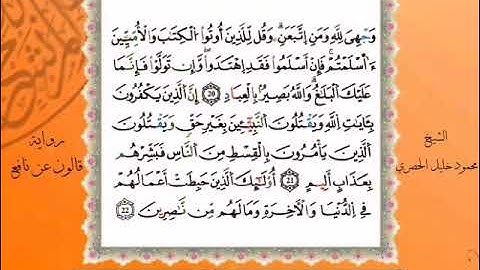 وَجْهِيَ لِلهِ وَمَنِ اِتَّبَعَنِۦ وَقُل لِّلذِينَ أُوتُوا۟ اُ۬لْكِتَٰبَ وَالْأُمِّيِّـۧنَ
ءَآسْلَمْتُمْ فَإِنْ أَسْلَمُوا۟ فَقَدِ اِهْتَدَوا۟ وَّإِن تَوَلَّوْا۟ فَإِنَّمَا
عَلَيْكَ اَ۬لْبَلَٰغُ وَاللهُ بَصِيرٌۢ بِالْعِبَادِ 20 إِنَّ اَ۬لذِينَ يَكْفُرُونَ
بِـَٔايَٰتِ اِ۬للهِ وَيَقْتُلُونَ اَ۬لنَّبِيٓـِٕينَ بِغَيْرِ حَقٍّ وَيَقْتُلُونَ
اَ۬لذِينَ يَأْمُرُونَ بِالْقِسْطِ مِنَ اَ۬لنَّاسِ فَبَشِّرْهُم
بِعَذَابٍ أَلِيمٍ 21 أُو۟لَٰٓئِكَ اَ۬لذِينَ حَبِطَتْ أَعْمَٰلُهُمْ
فِے اِ۬لدُّنْيَا وَالْأٓخِرَةِ وَمَا لَهُم مِّن نَّٰصِرِينَ 22
الشيخ
محمود خليل الحصري
رواية
قالون عن نافع